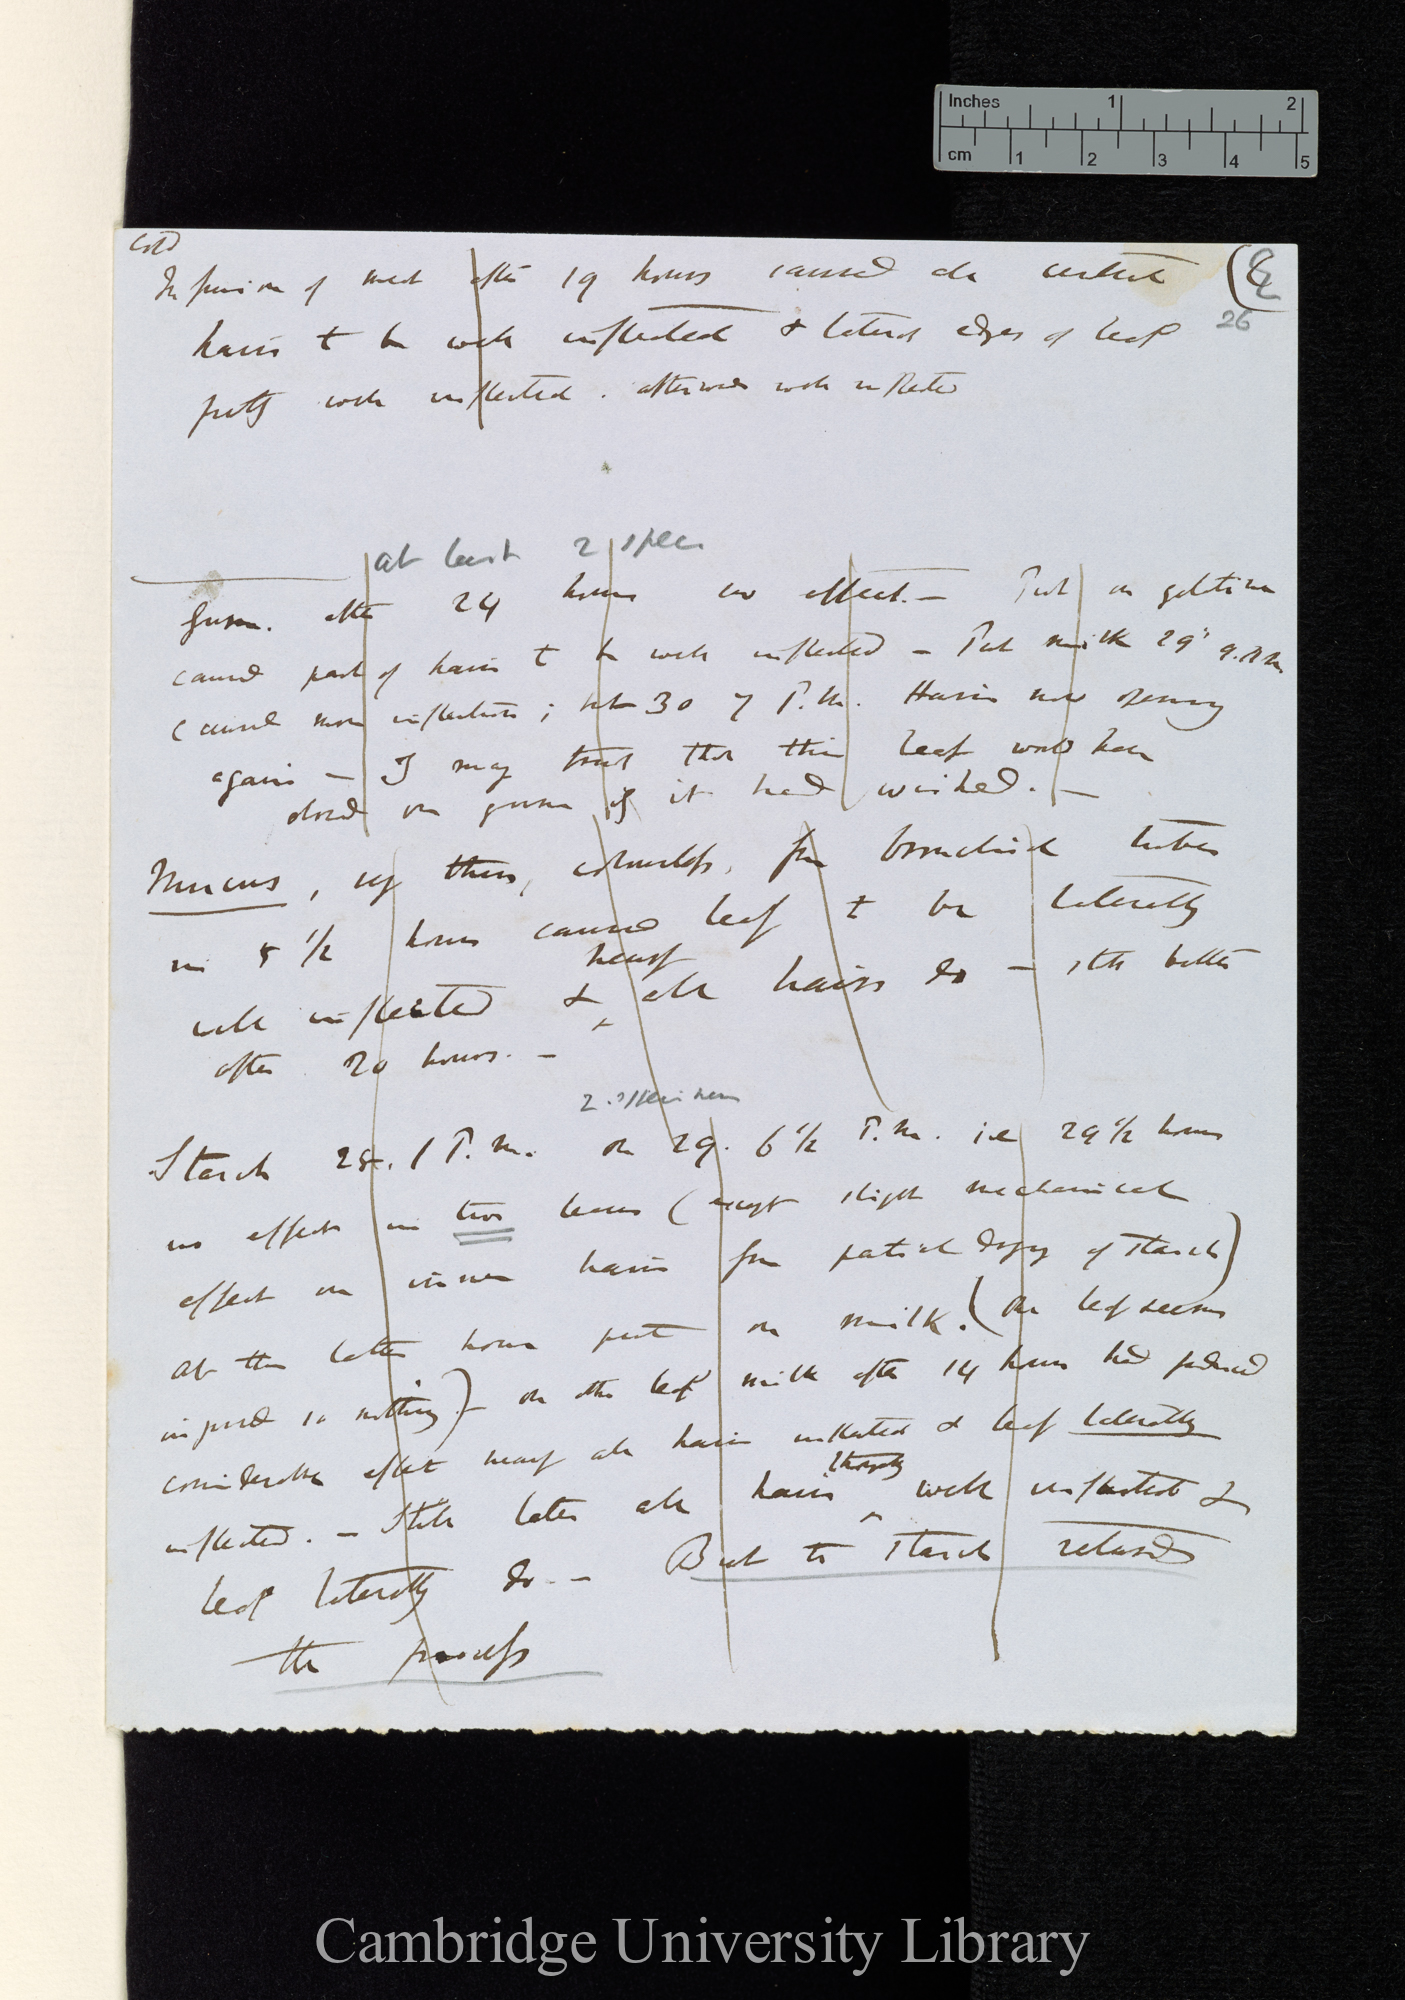 Inches 1 2
cm 1 2 3 4 5
Cold
Infusion of meat after 19 hours caused all central (8
26
hairs to be well inflected & lateral edges of leaf
pretty well inflected. afterwards well inflected
at least 2 spec
Gum. after 24 hours no effect.— Put on gelatine
caused part of hairs to be well inflected — Put milk 29th 9. A.M.
caused more inflection; but 30 7 P.M. Hairs now opening
again — I may trust that this leaf would have
closed on gum if it had wished.—
Mucus, very thin, colourless, from bronchial tubes
in 5 1/2 hours caused leaf to be laterally
nearly
well inflected & all hairs do — still better
after 20 hours.—
2. specimens
Starch 28. 1 P.M. on 29. 6 1/2 P.M. i.e 29 1/2 hours
no effect in two leaves (except slight mechanical
effect on inner hairs from partial drying of starch)
at the latter hour put on milk. (One leaf seems
injured so nothing) — on other leaf milk after 14 hours had produced
considerable effect nearly all hairs inflected & leaf laterally
inflected. — Still later all hairs well inflected &
leaf laterally do.— But to starch refused
the process
Cambridge University Library